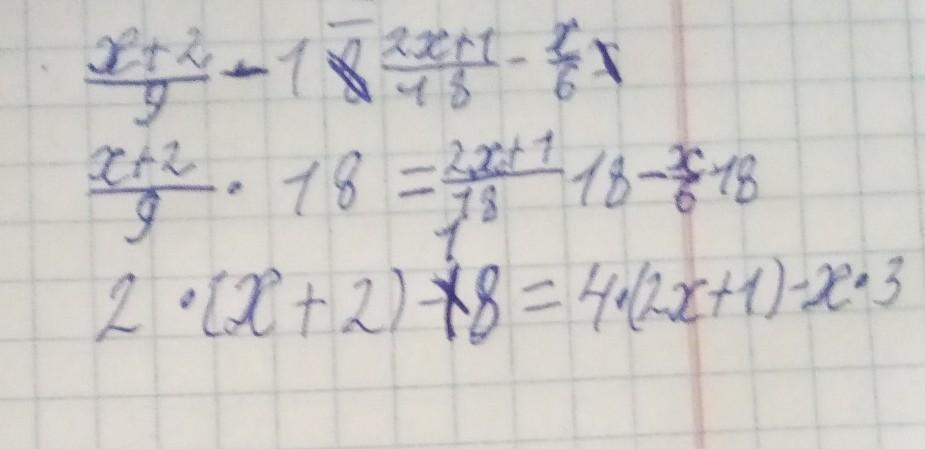 x+2/9 - 1 = 2x+1/18 - x/6
x+2/9 · 18 = 2x+1/18 18 - x/6 18
2 · (x + 2) - 18 = 4·(2x+1) - x·3